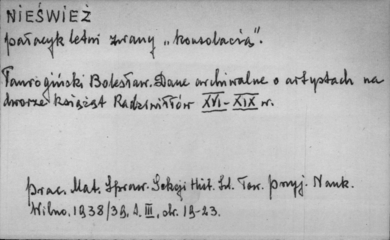 NIEŚWIEŻ
pałacyk letni zwany „konsolacią”.
Taurogiński Bolesław. Dane archiwalne o artystach na
dworze książąt Radziwiłłów XVI-XIX w.
prac. Mat. Spraw. Sekcji Hist. Sł. Tow. przyj. Nauk.
Wilno. 1938/39. t. III, str. 19-23.